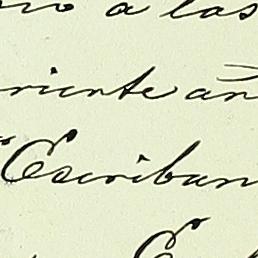 a las
riente añ
Escriban